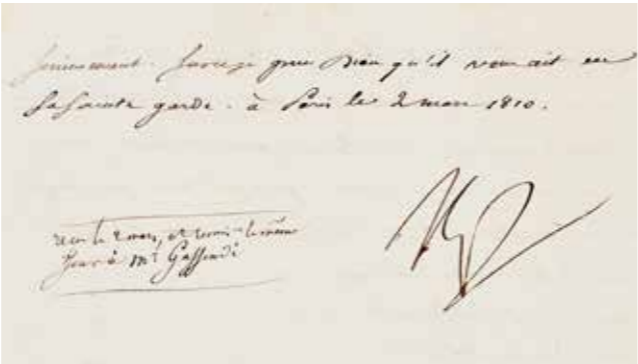 Sur ce je prie Dieu qu'il vous ait en
sa sainte garde. à Paris le 2 mars 1810.
reçu le 2 mars, et remis le même
jour à Mr Gassendi
Np